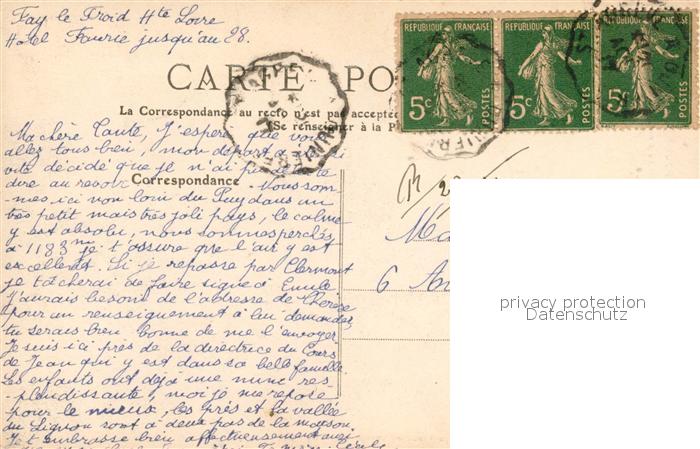 Fay le Froid Hte Loire
Hôtel Fourie jusqu'au 28.
CARTE PO
La Correspondance au recto n'est pas acceptée
(Se renseigner à la P
Correspondance
REPUBLIQUE FRANÇAISE
5c
POSTES
REPUBLIQUE FRANÇAISE
5c
POSTES
REPUBLIQUE FRANÇAISE
5c
POSTES
Ma chère Tante, J'espère que vous
allez tous bien, mon départ a été si
vite décidé que je n'ai pu te
dire au revoir. Nous som-
mes ici non loin du Puy dans un
très petit mais très joli pays, le calme
y est absolu, nous sommes perchés
à 1183 m je t'assure que l'air y est
excellent. Si je repasse par Clermont
je tâcherai de faire signe à Emile
J'aurais besoin de l'adresse de Thérèse
pour un renseignement à lui demander
tu serais bien bonne de me l'envoyer.
Je suis ici près de la directrice du Cours
de Jean qui y est dans sa belle famille.
Les enfants ont déjà une mine res-
plendissante, moi je me repose
pour le mieux, les prés et la vallée
du Lignon sont à deux pas de la maison.
Je t'embrasse bien affectueusement avec
Cécile
Ma
6 A
privacy protection
Datenschutz